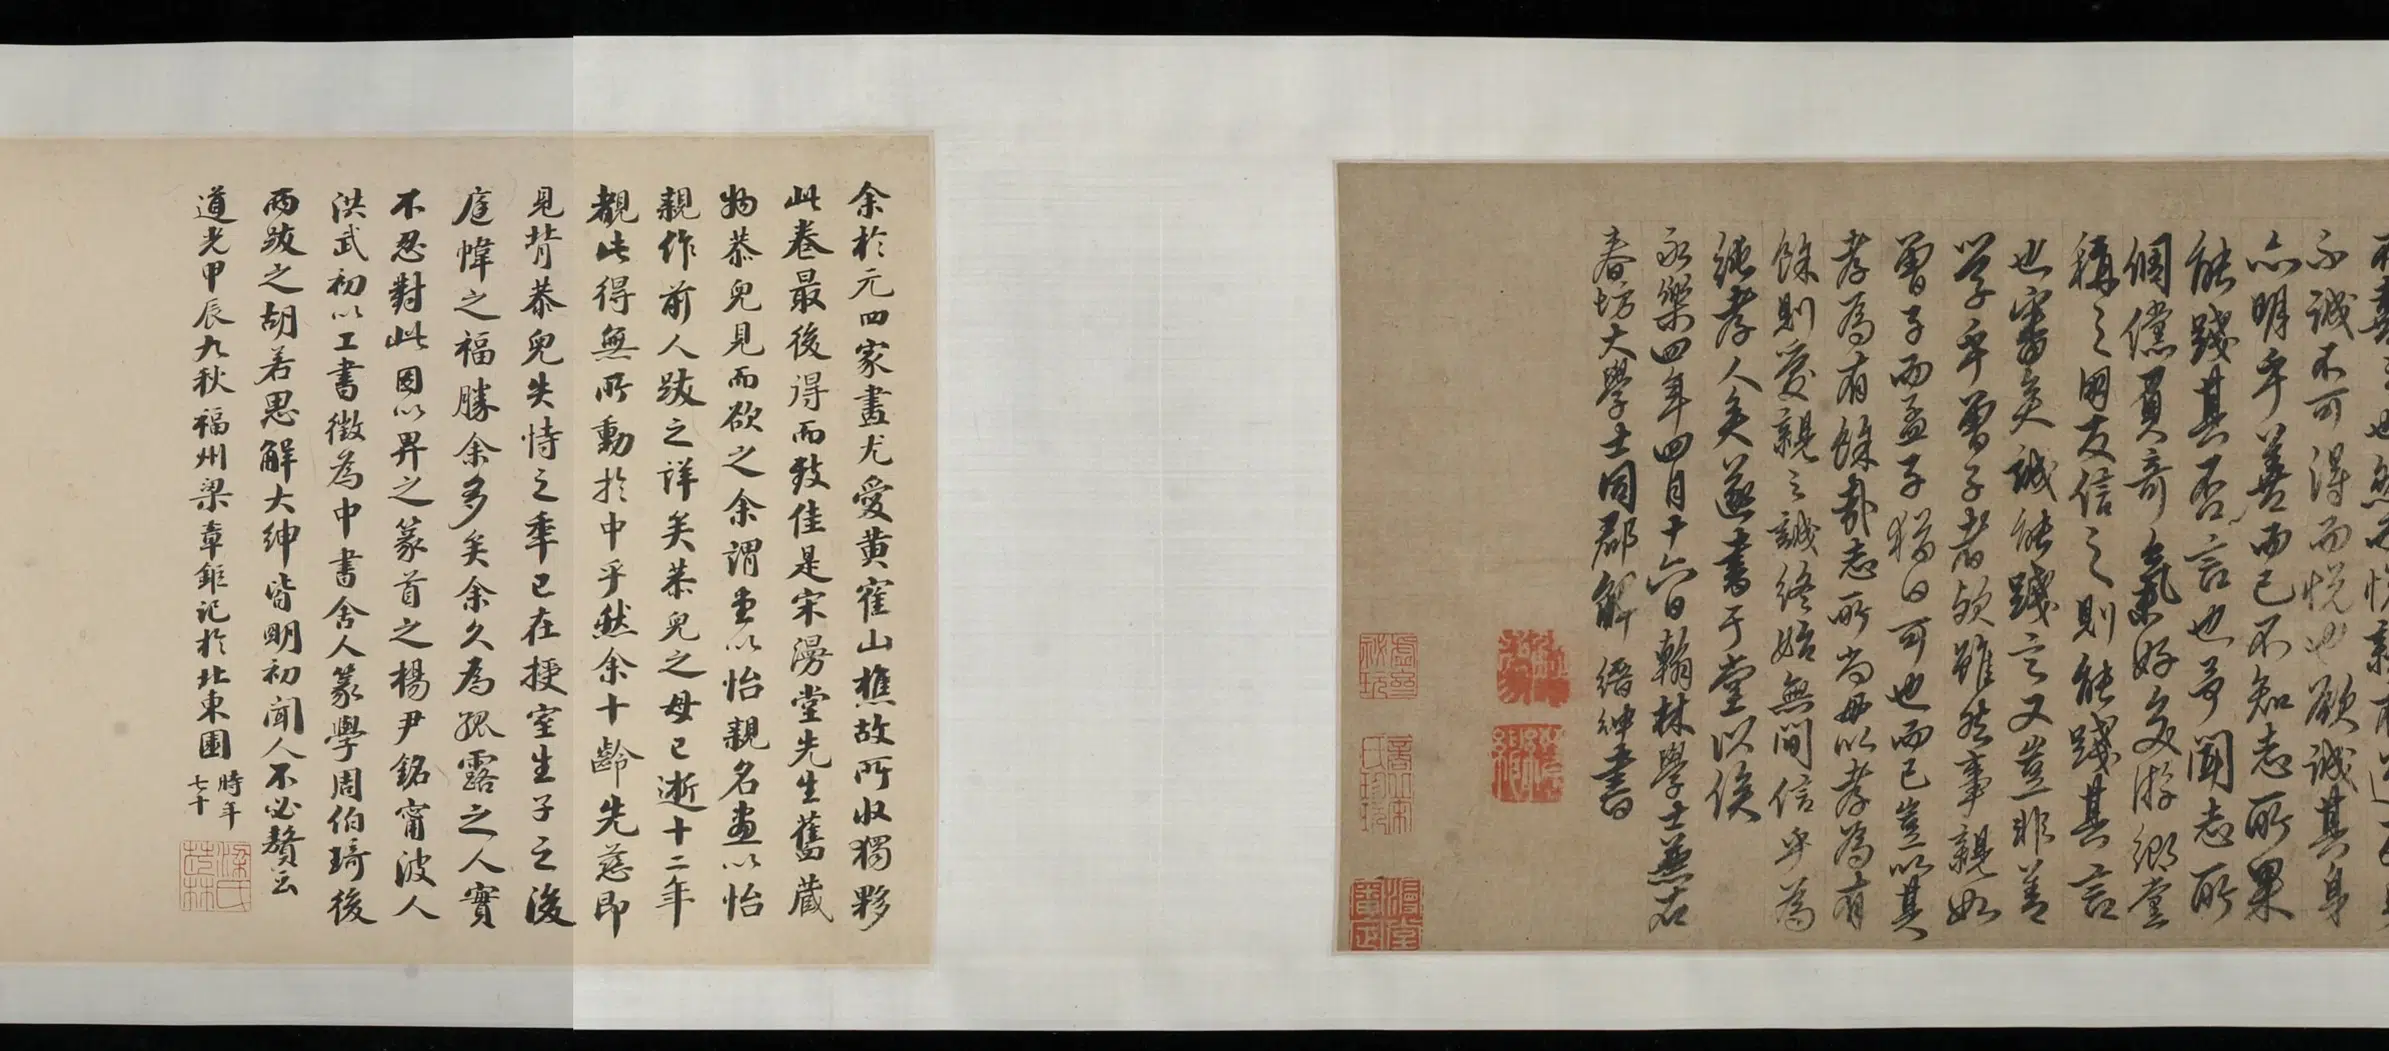 不誠不可得而悅也欲誠其身
亦明乎善而已不知志所果
能踐其否言也予聞志所
倜儻負奇氣好交游鄉黨
稱之朋友信之則能踐其言
也審矣誠能踐言又豈非善
學乎曾子者歟雖然事親如
曾子而孟子猶曰可也而已豈以其
孝為有餘哉志所尚毋以孝為有
餘則愛親之誠終始無間信乎為
純孝人矣遂書于堂以俟
永樂四年四月十六日翰林學士兼右
春坊大學士同郡解縉紳書
余於元四家畫尤愛黃鶴山樵故所收獨夥
此卷最後得而致佳是宋漫堂先生舊藏
物恭兒見而欲之余謂圖以怡親名圖以怡
親作前人跋之詳矣恭兒之母已逝十二年
覩此得無所動於中乎然余十齡先慈即
見背恭兒失恃之年已在授室生子之後
庭幃之福勝余多矣余久為孤露之人實
不忍對此因以畀之篆首之楊尹銘甯波人
洪武初以工書徵為中書舍人篆學周伯琦後
兩跋之胡若思解大紳皆明初聞人不必贅云
道光甲辰九秋福州梁章鉅記於北東園時年七十
梁氏茞林
漫堂